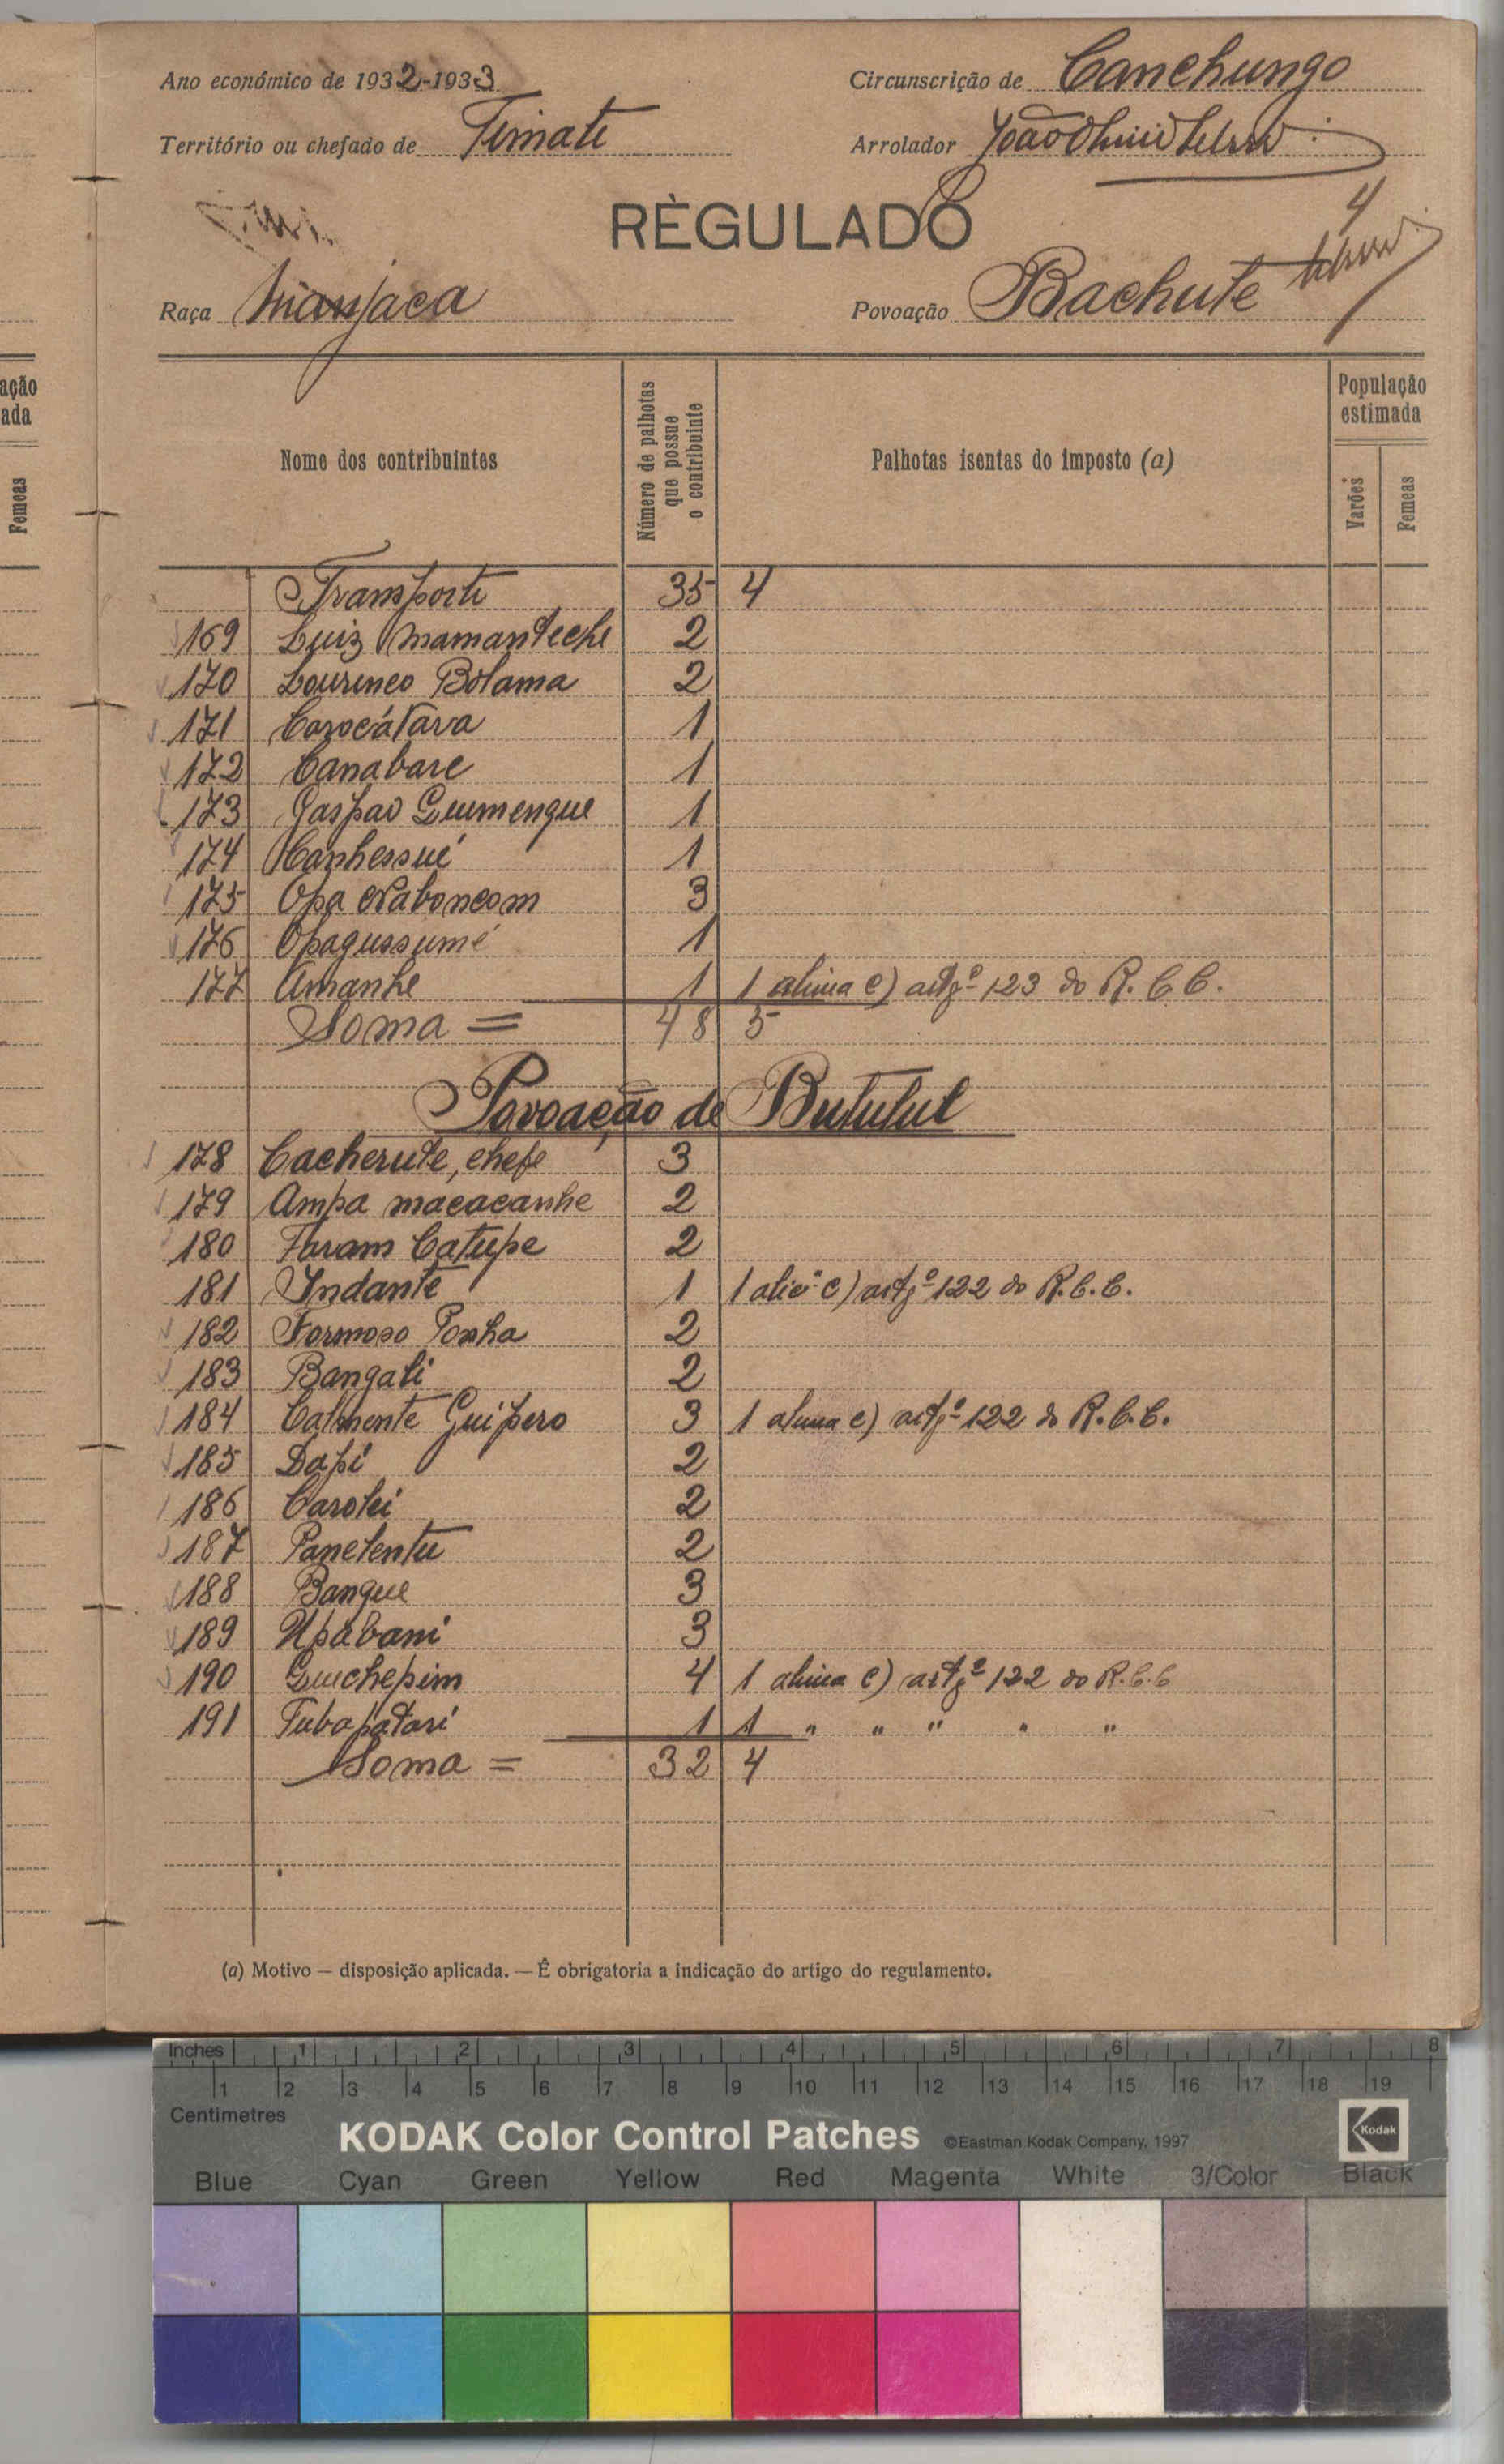 Ano económico de 1932-1933
Circunscrição de Canchungo
Território ou chefado de Timate
Arrolador João
REGULADO
4
Raça Manjaca
Povoação Bachute
ação
ada
Femeas
Nome dos contribuintes
Número de palhotas que possue o contribuinte
Palhotas isentas do imposto (a)
População estimada
Varões
Femeas
Transporte 35 4
169 Luiz Mamanteche 2
170 Lourenco Bolama 2
171 Corocátava 1
172 Canabare 1
173 Gaspar Gumengue 1
174 Canhessué 1
175 Opa Naboncom 3
176 Opagussumé 1
177 Amanhe 1 1 alinea c) artgº 123 do R. C. C.
Soma = 48 5
Povoação de Bututul
178 Cacherute, chefe 3
179 Ampa macacanhe 2
180 Faram Catupe 2
181 Indante 1 1 c) artgº 122 do R. C. C.
182 Formoso Ponha 2
183 Bangali 2
184 Calmente Guipero 3 1 alinea c) artgº 122 do R. C. C.
185 Dapi 2
186 Carolei 2
187 Panetente 2
188 Bangue 3
189 Upabani 3
190 Guichepim 4 1 alinea c) artgº 122 do R. C. C
191 Tubapatari 1 1 " " " " "
Soma = 32 4
(a) Motivo — disposição aplicada. — É obrigatoria a indicação do artigo do regulamento.
Inches 1 2 3 4 5 6 7 8
1 2 3 4 5 6 7 8 9 10 11 12 13 14 15 16 17 18 19
Centimetres
KODAK Color Control Patches ©Eastman Kodak Company, 1997 Kodak
Blue Cyan Green Yellow Red Magenta White 3/Color Black